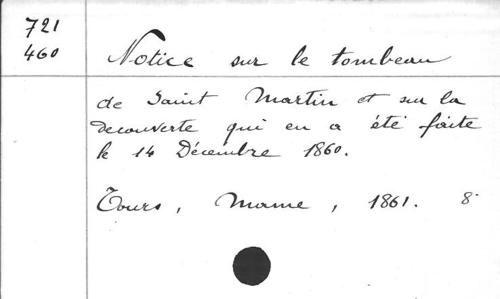 721
460
Notice sur le tombeau
de Saint Martin et sur la
decouverte qui en a été faite
le 14 Décembre 1860.
Tours, Mame, 1861. 8°